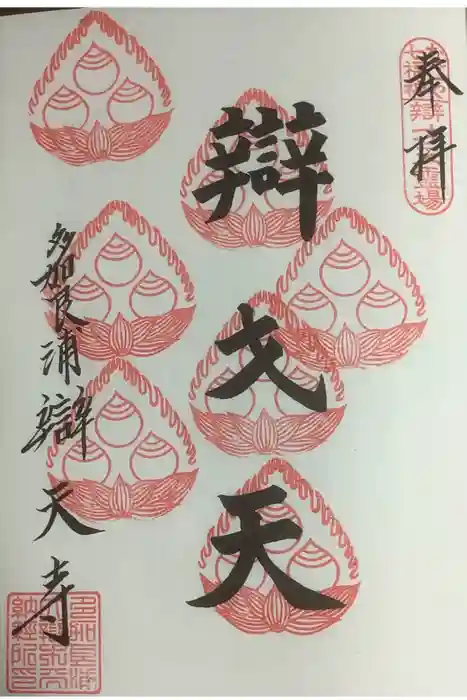 奉拝
靈場
辯才天
多加良浦辯天寺